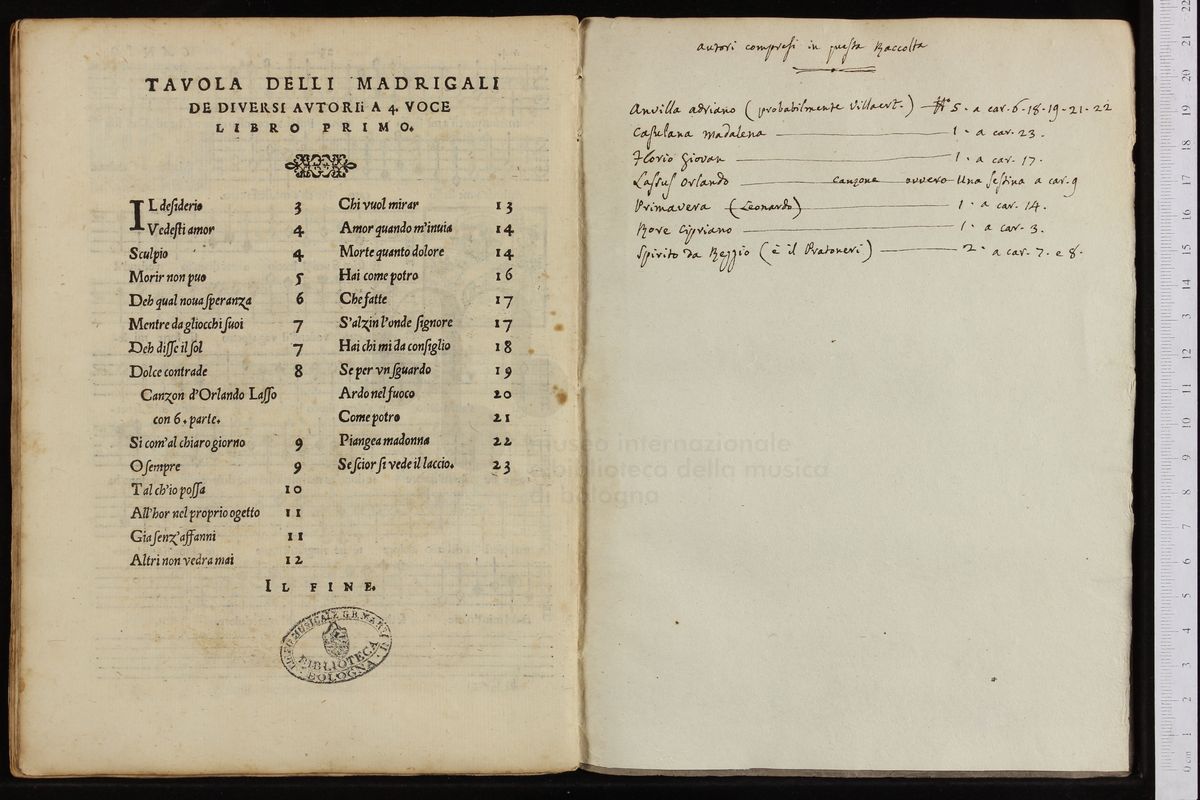 TAVOLA DELLI MADRIGALI
DE DIVERSI AVTORIi A 4. VOCE
LIBRO PRIMO.
IL desiderio 3
Vedesti amor 4
Sculpio 4
Morir non puo 5
Deh qual noua speranza 6
Mentre da gliocchi suoi 7
Deh disse il sol 7
Dolce contrade 8
Canzon d'Orlando Lasso
con 6. parte.
Si com'al chiaro giorno 9
O sempre 9
Tal ch'io possa 10
All'hor nel proprio ogetto 11
Gia senz'affanni 11
Altri non vedra mai 12
Chi vuol mirar 13
Amor quando m'inuia 14
Morte quanto dolore 14
Hai come potro 16
Che fatte 17
S'alzin l'onde signore 17
Hai chi mi da consiglio 18
Se per vn sguardo 19
Ardo nel fuoco 20
Come potro 21
Piangea madonna 22
Se scior si vede il laccio. 23
IL FINE.
LICEO MUSICALE G.B. MARTINI
BIBLIOTECA
BOLOGNA
autori compresi in questa Raccolta
Anvilla adriano (probabilmente Villaert.) N.o 5. a car. 6-18-19-21-22
Casulana Madalena 1. a car. 23.
Florio Giovan 1. a car. 17.
Lassus Orlando canzone ovvero Una sestina a car. 9
Primavera (Leonardo) 1. a car. 14.
Rore Cipriano 1. a car. 3.
Spirito da Reggio (è il Pratoneri) 2. a car. 7. e 8.
museo internazionale
e biblioteca della musica
di bologna
0 cm 1 2 3 4 5 6 7 8 9 10 11 12 13 14 15 16 17 18 19 20 21 22